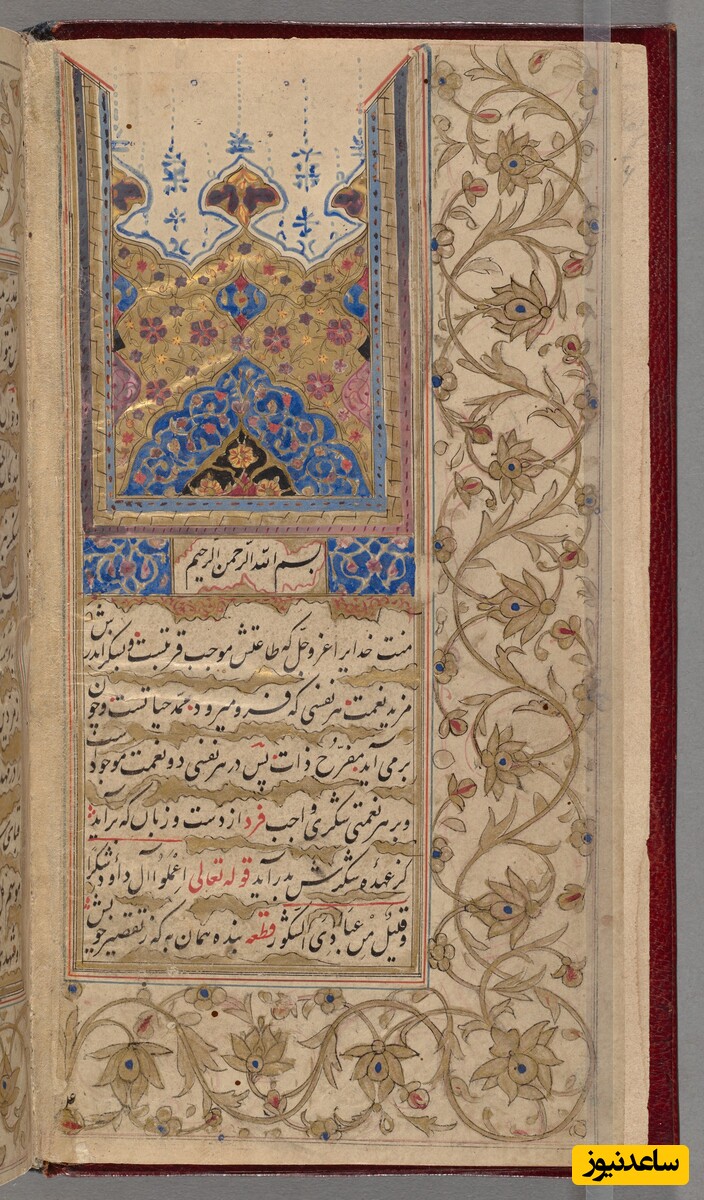 بسم الله الرحمن الرحیم
منت خدایرا عز و جل که طاعتش موجب قربتست و بشکر اندرش
مزید نعمت هر نفسی که فرو میرود ممد حیاتست و چون
برمی آید مفرح ذات پس در هر نفسی دو نعمت موجودست
و بر هر نعمتی شکری واجب فرد از دست و زبان که برآید
کز عهده شکرش بدر آید قوله تعالی اعملوا آل داود شکرا
و قلیل من عبادی الشکور قطعه بنده همان به که ز تقصیر خویش
ساعدنیوز